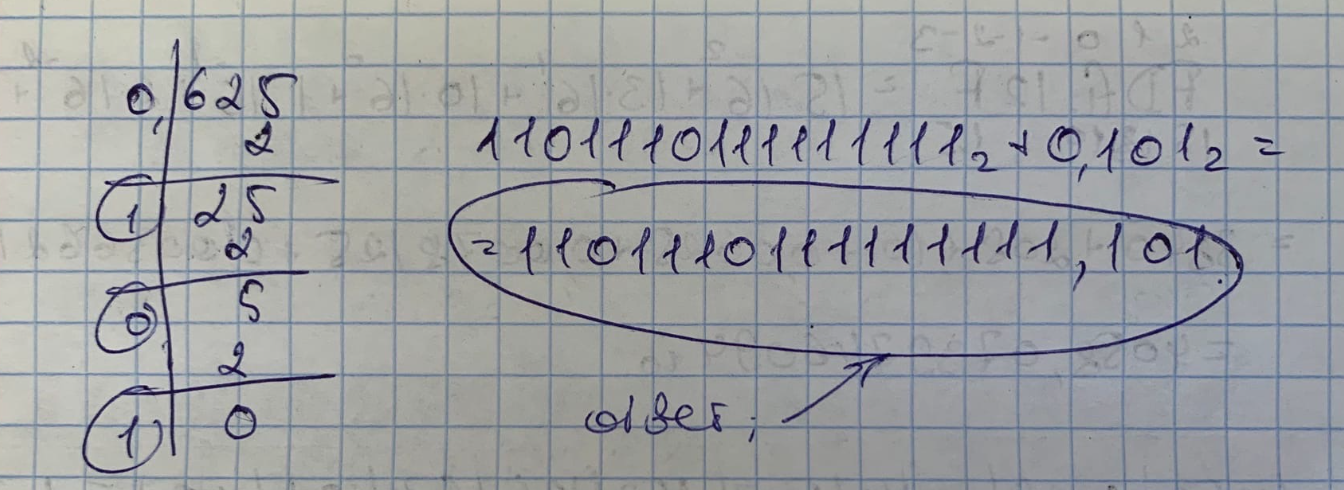 0,625
2
1 25
2
0 5
2
1 0
1101110111111111₂ + 0,101₂ =
= 1101110111111111,101
ответ;